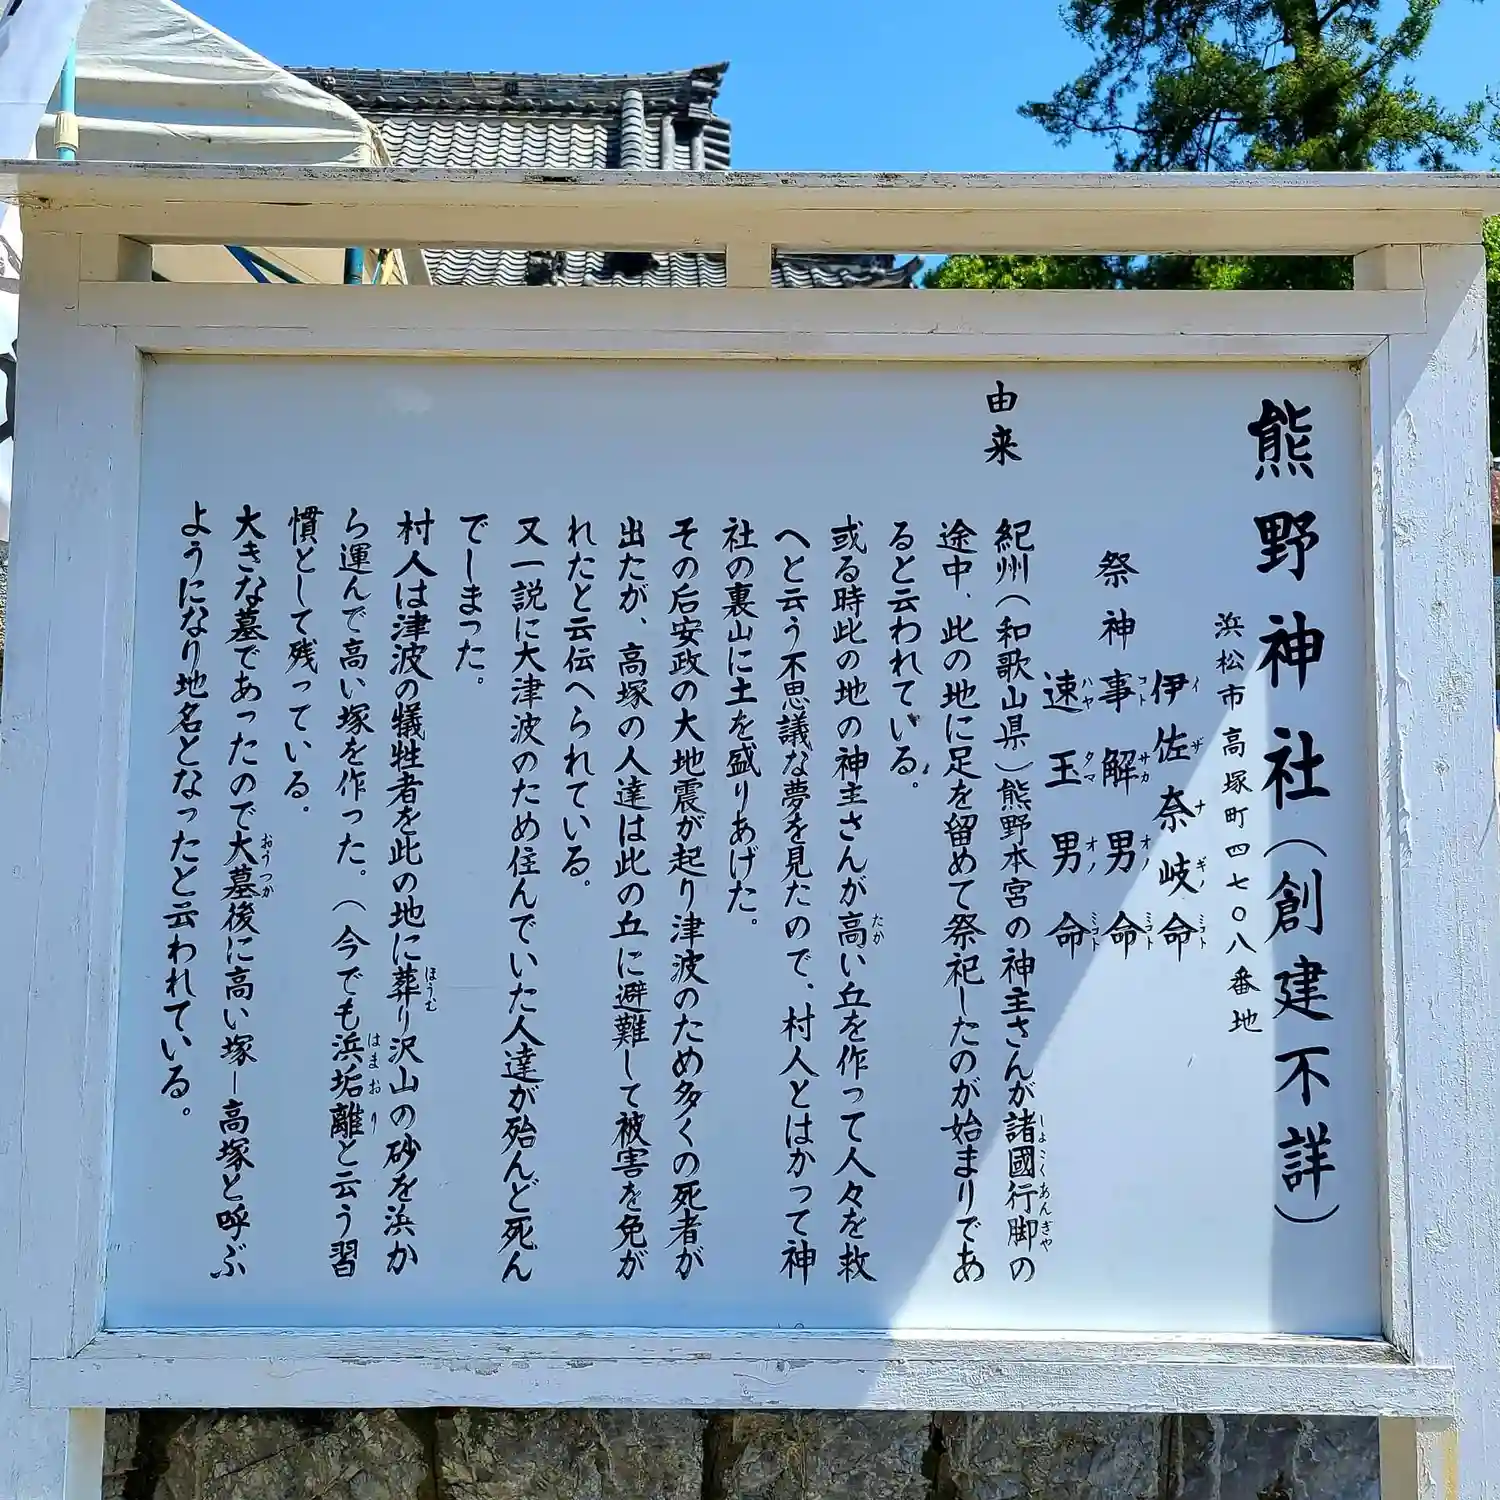 熊野神社（創建不詳）
浜松市高塚町四七〇八番地
伊佐奈岐命
イザナギノミコト
祭神 事解男命
コトサカオノミコト
速玉男命
ハヤタマオノミコト
由来
紀州（和歌山県）熊野本宮の神主さんが諸國行脚の
しょこくあんぎゃ
途中、此の地に足を留めて祭祀したのが始まりであ
ると云われている。
或る時此の地の神主さんが高い丘を作って人々を救
たか
へと云う不思議な夢を見たので、村人とはかって神
社の裏山に土を盛りあげた。
その后安政の大地震が起り津波のため多くの死者が
出たが、高塚の人達は此の丘に避難して被害を免が
れたと云伝へられている。
又一説に大津波のため住んでいた人達が殆んど死ん
でしまった。
村人は津波の犠牲者を此の地に葬り沢山の砂を浜か
ほうむ
ら運んで高い塚を作った。（今でも浜垢離と云う習
はまおり
慣として残っている。
大きな墓であったので大墓後に高い塚－高塚と呼ぶ
おうつか
ようになり地名となったと云われている。